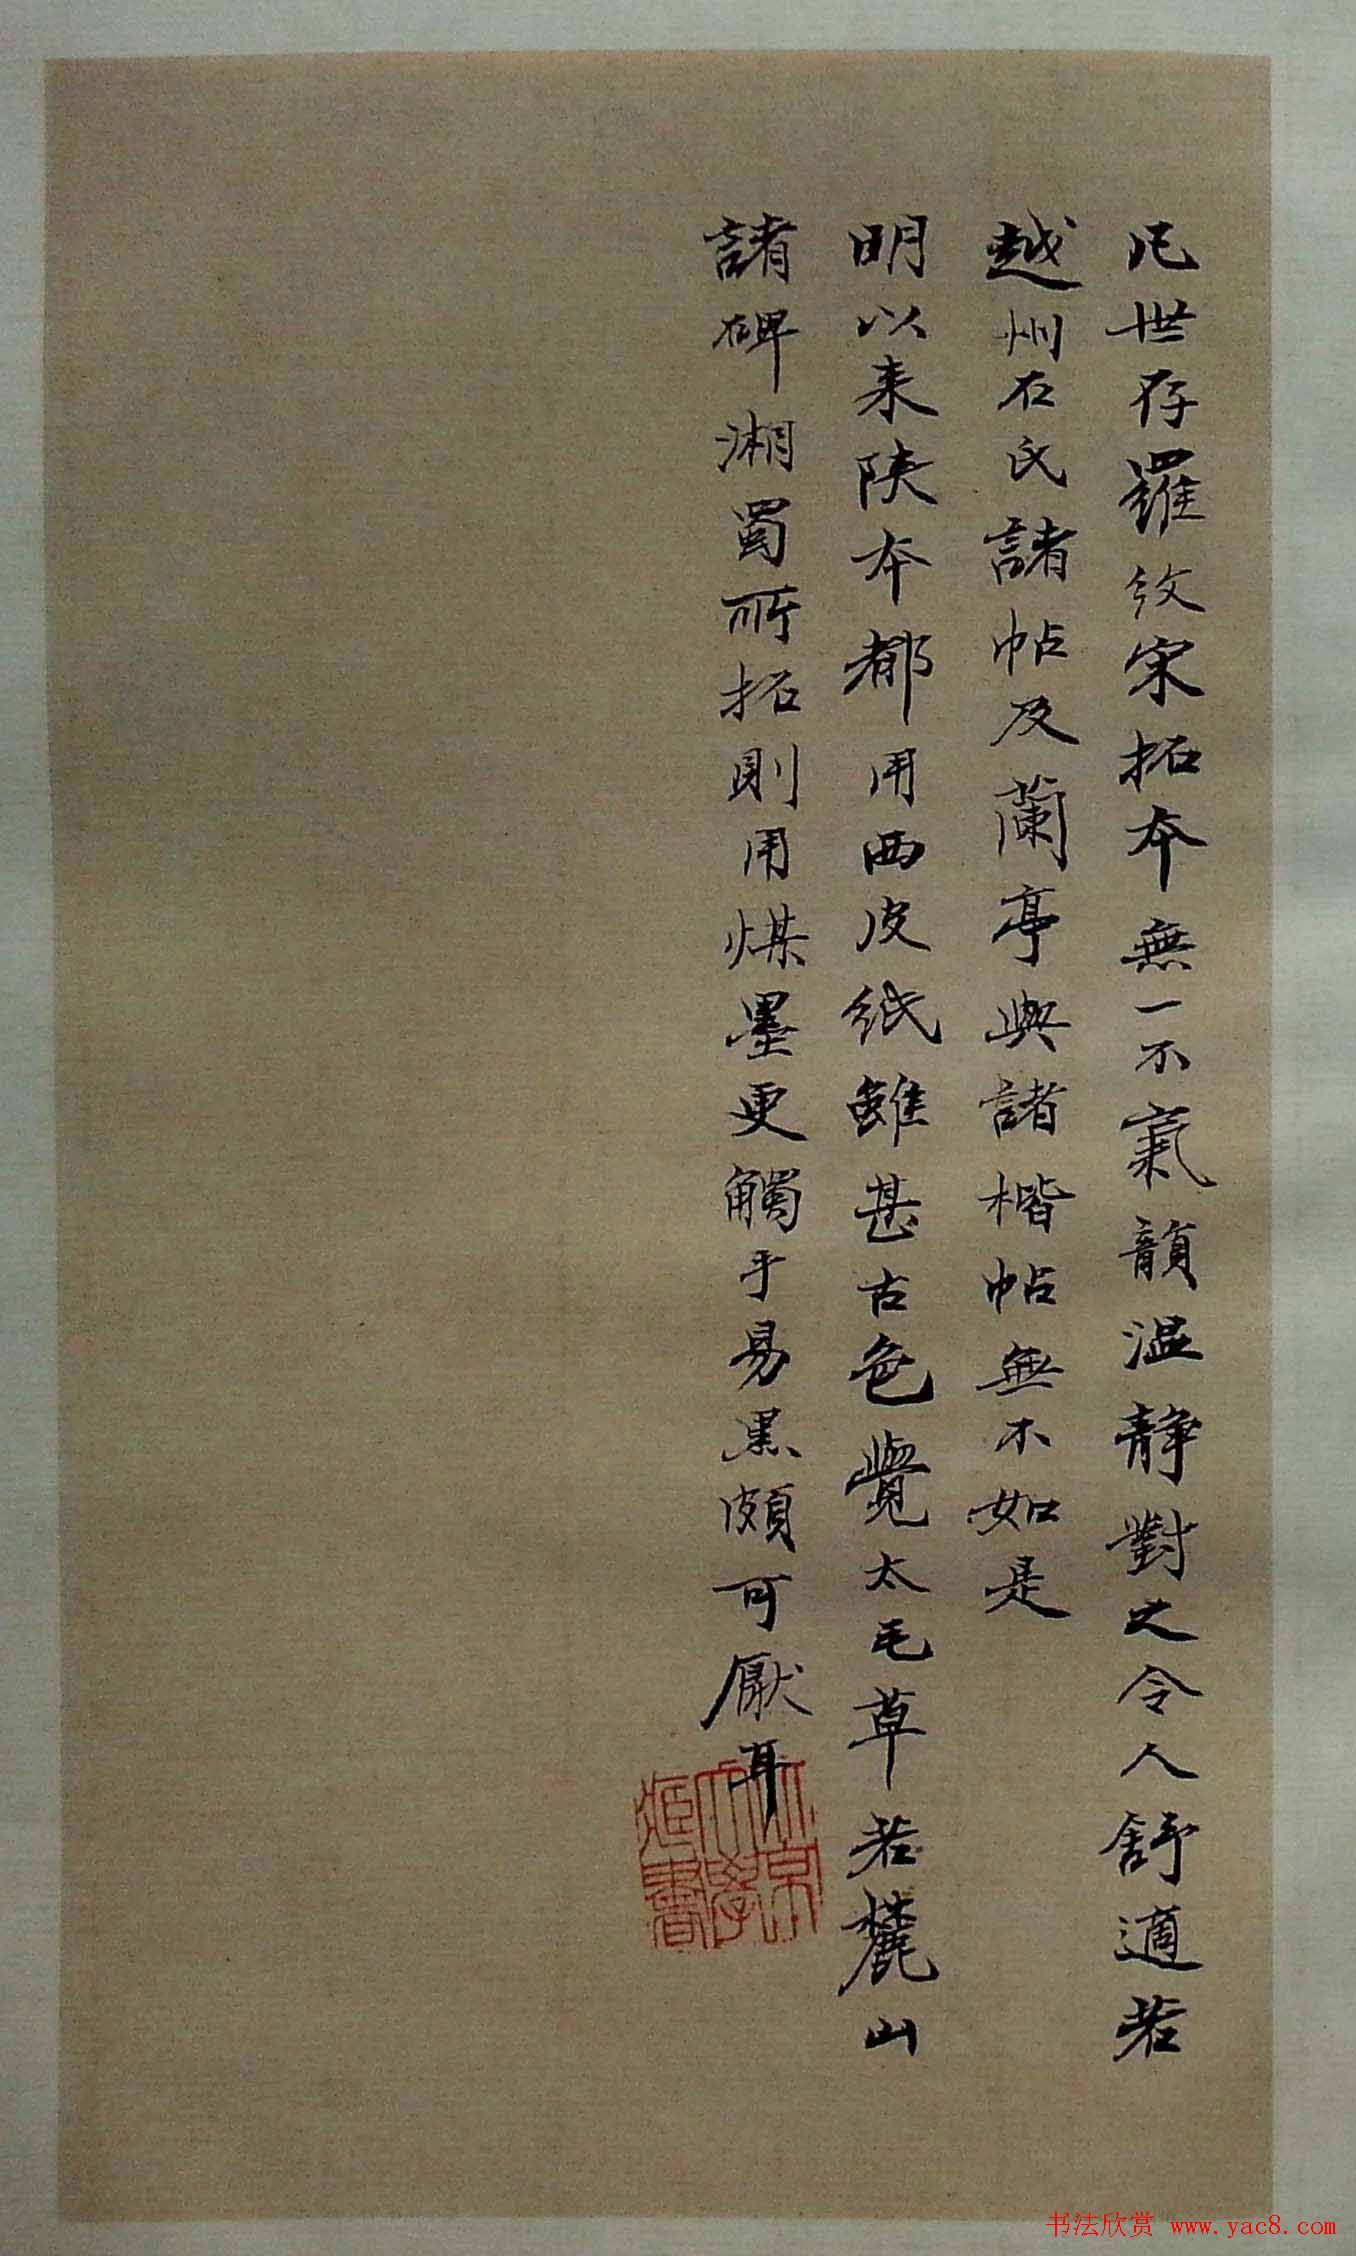 凡世存羅紋宋拓本無一不氣韻温静對之令人舒適若
越州石氏諸帖及蘭亭與諸楷帖無不如是
明以来陝本都用西皮紙雖甚古色覺太毛草若麓山
諸碑湘蜀所拓則用煤墨更觸手易黒頗可厭耳
北京大學圖書
书法欣赏 www.yac8.com